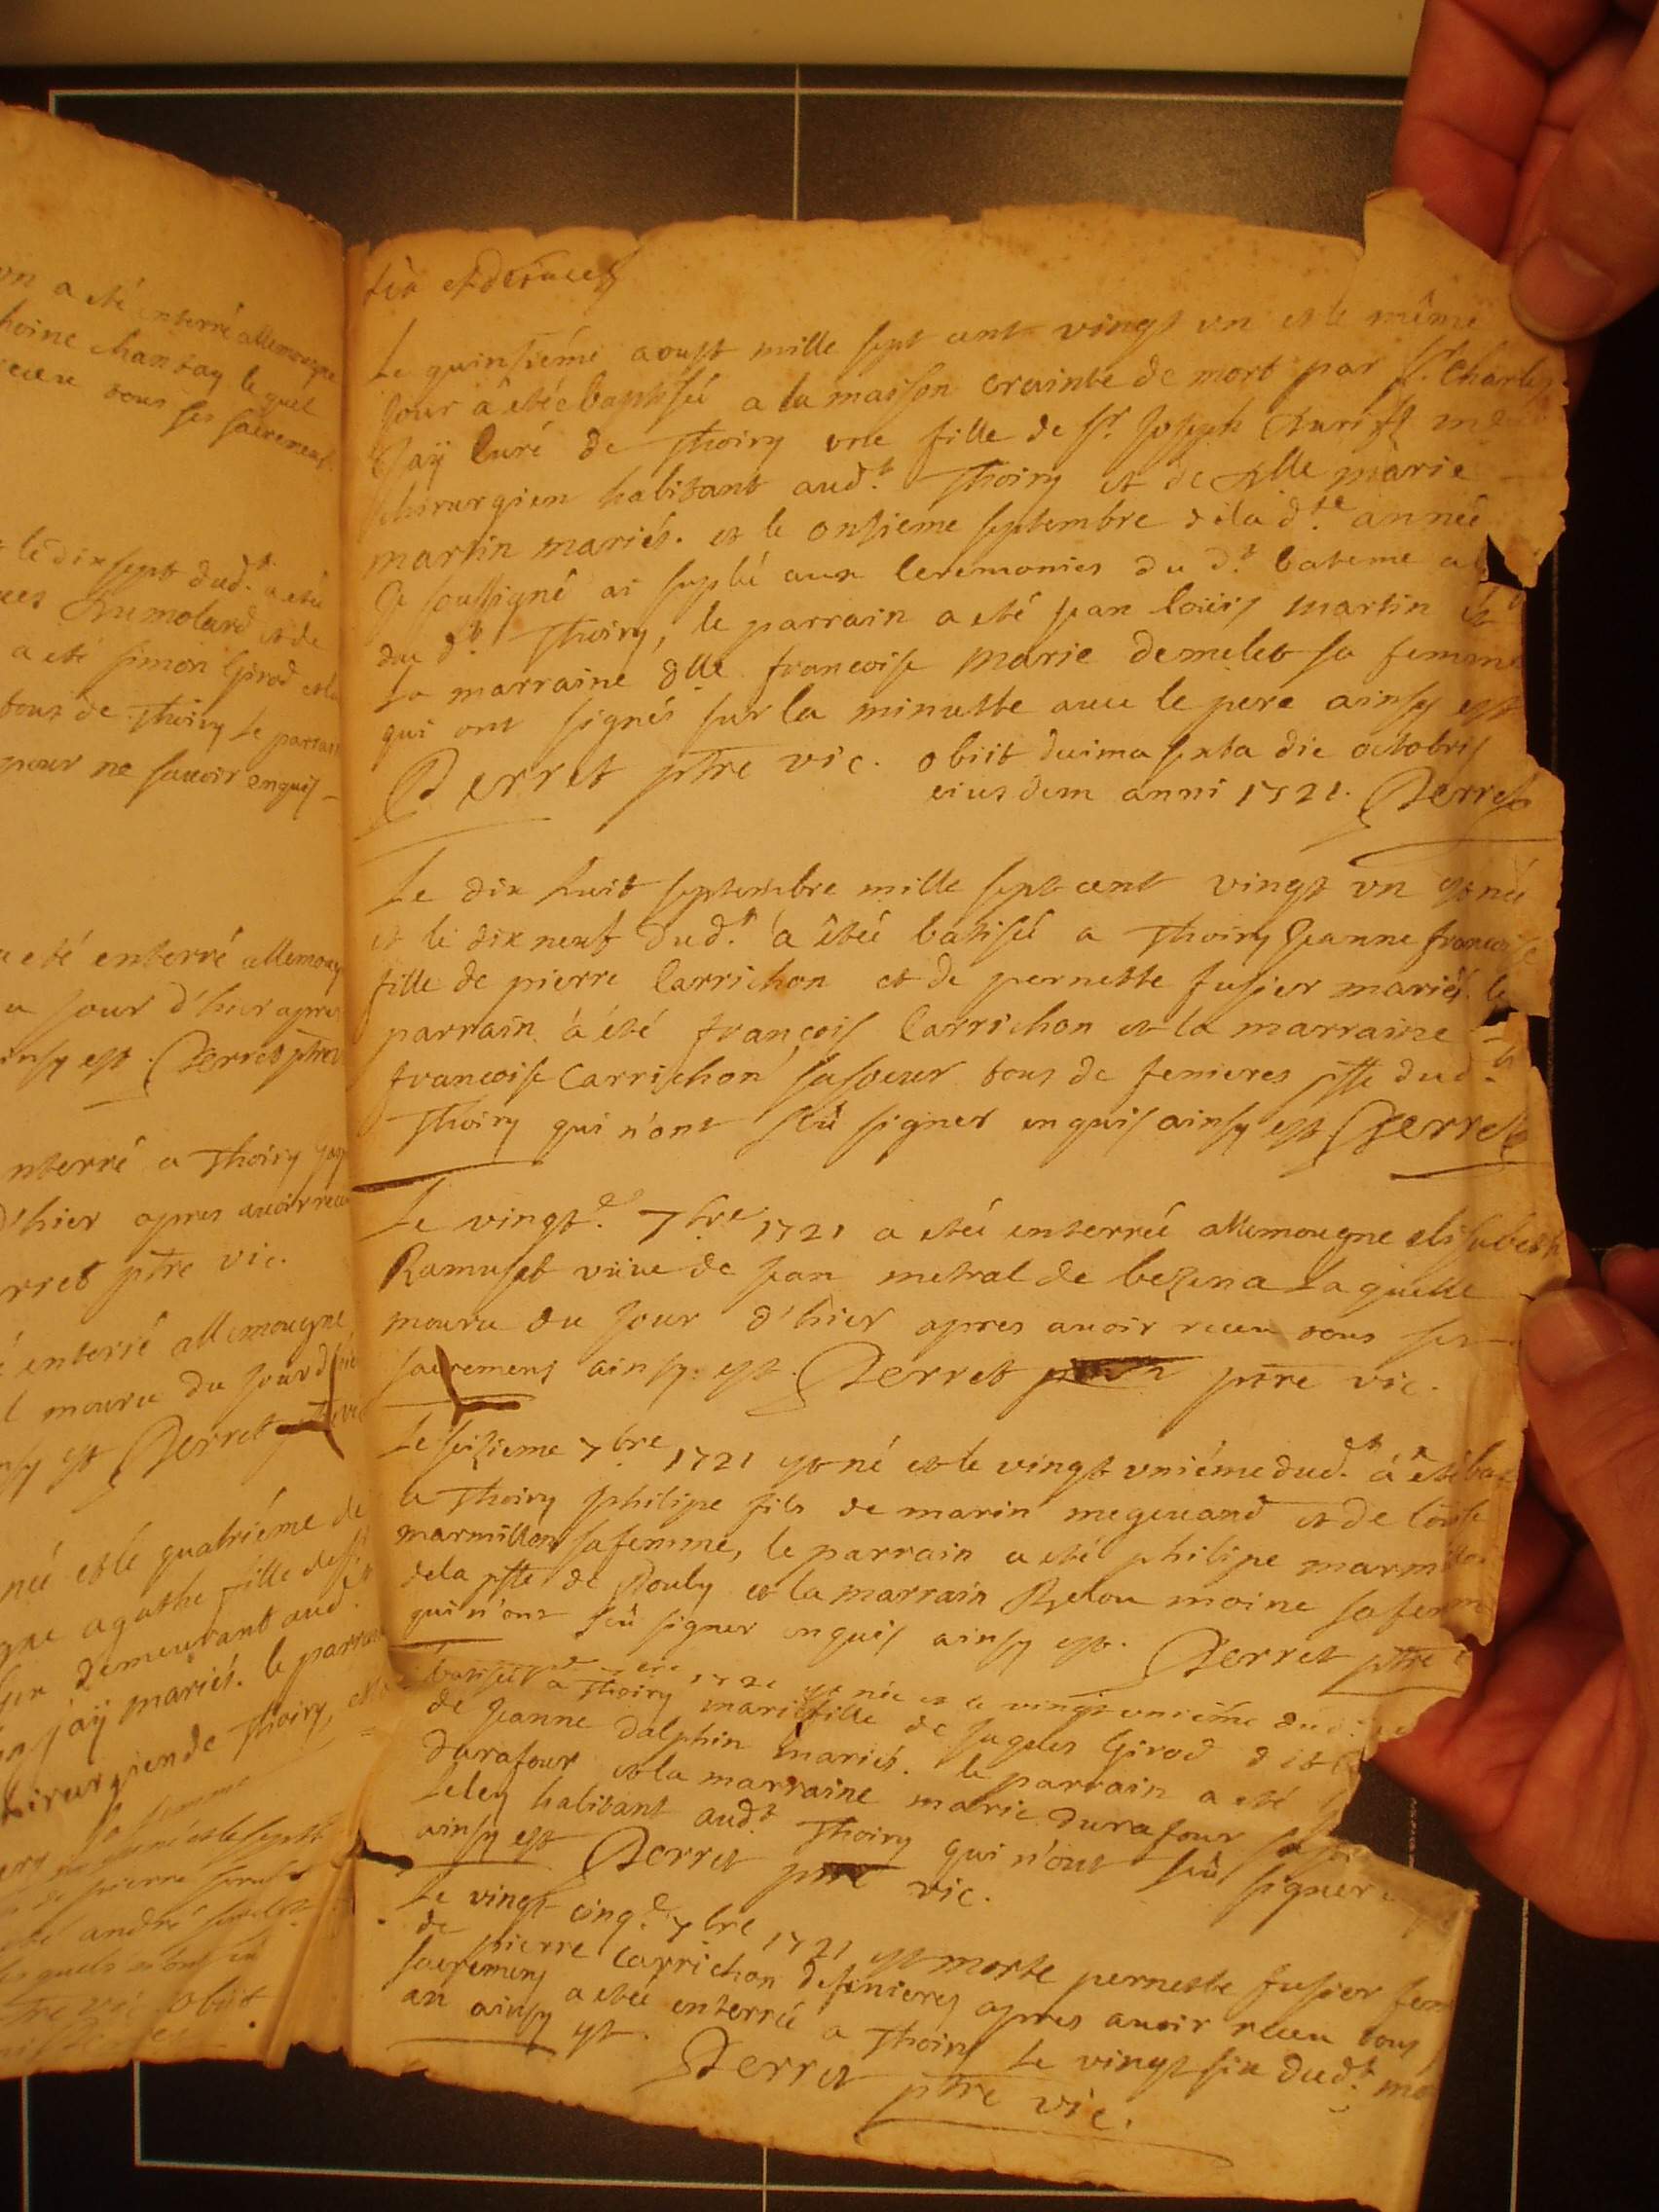 on a eté enterré allemougne
hoine chantay le quel
receu tous ses sacremens
le dixsept dud.t a eté
ques Dumolard et de
a eté simon Girod et la
tous de Thoiry le parrain
pour ne savoir enquis
a eté enterré allemougne
u jour d'hier apres
insy est Perret ptre
nterré a Thoiry
d'hier apres avoir receu
rret ptre vic.
é enterré allemougne
l mouru du jour d'hier
nsy est Perret
née et le quatriéme de
gne agathe fille de
demeurant aud.t
jaÿ mariés. le parrain
hirurgien de Thoiry,
sa femme
né et le sept
de pierre
andré
lesquels n'ont sû
ptre vic obiit
Le quinsiéme aoust mille sept cent vingt un et le même
jour a étée baptisée a la maison crainte de mort par Sr. Charles
Jaÿ Curé de Thoiry une fille de Sr. Joseph
chirurgien habitant aud.t Thoiry et de Dlle marie
martin mariés. et le onsieme septembre de la d.te année
Je soussigné ai suplée aux Ceremonies du d.t bateme
du d.t Thoiry, le parrain a eté jean loüis martin et
la marraine dlle francoise marie demelet sa femme
qui ont signés sur la minutte avec le pere ainsy est
Perret ptre vic. obiit decima sexta die octobris
eiusdem anni 1721. Perret
Le dix huit septembre mille sept cent vingt un est née
et le dix neuf dud.t a étée batisée a Thoiry Jeanne francoise
fille de pierre Carrichon et de pernette fusier mariés. le
parrain a été françois Carrichon et la marraine
francoise Carrichon sa soeur tous de fenieres psse dud.t
Thoiry qui n'ont sçû signer enquis ainsy est Perret
Le vingt.e 7bre 1721 a etée enterrée allemougne elisabeth
Ramuset veuve de jean metral de bezena laquelle
mouru du jour d'hier apres avoir receu tous ses
sacremens ainsy est. Perret ptre vic.
Le seisieme 7bre 1721 est né et le vingt uniéme dud.t a eté bat
a Thoiry philipe fils de marin megevand et de loüise
marmillon sa femme, le parrain a eté philipe marmillon
de la psse de Pouly et la marrain moine sa femme
qui n'ont sçû signer enquis ainsy est. Perret ptre
1721 est née et le vingt uniéme dud.t
batisée a Thoiry marie fille de jaques Girod dit
de Jeanne Dalphin mariés. le parrain a eté
Durafour et la marraine marie durafour sa
habitant aud.t Thoiry qui n'ont sçû signer
ainsy est Perret ptre vic.
Le vingt cinq.e 7bre 1721 est morte pernette fusier fem
de pierre Carrichon de fenieres apres avoir receu tous
sacremens a etée enterrée a Thoiry le vingt six dud.t
an ainsy est. Perret
ptre vic.